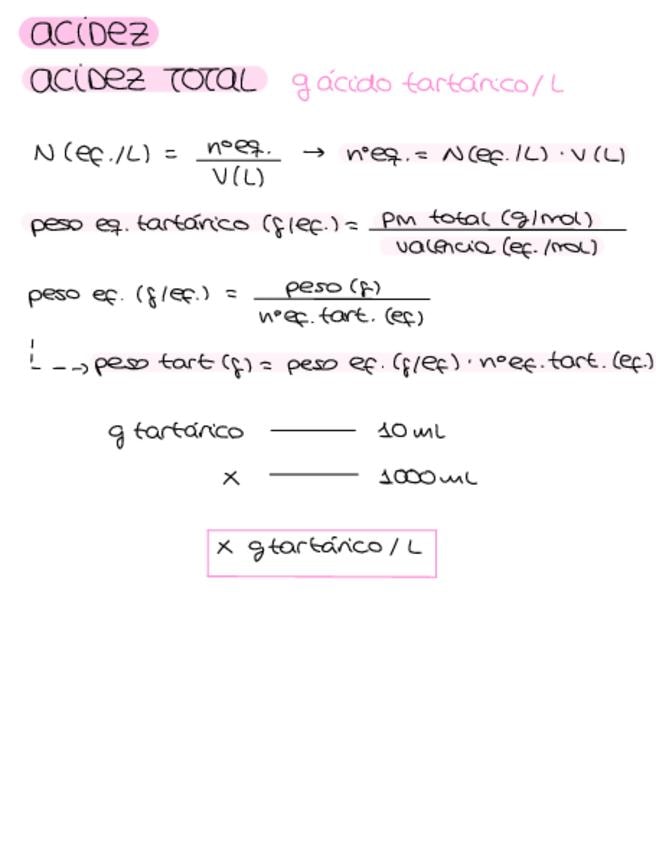 acidez
acidez TOTAL g ácido tartárico/L
N (eq./L) = nºeq. / V(L) → nºeq. = N(eq./L) · V(L)
peso eq. tartárico (g/eq.) = PM total (g/mol) / valencia (eq./mol)
peso eq. (g/eq.) = peso (g) / nºeq. tart. (eq)
--> peso tart (g) = peso eq. (g/eq) · nºeq. tart. (eq.)
g tartárico —— 10 mL
x —— 1000 mL
x g tartárico / L